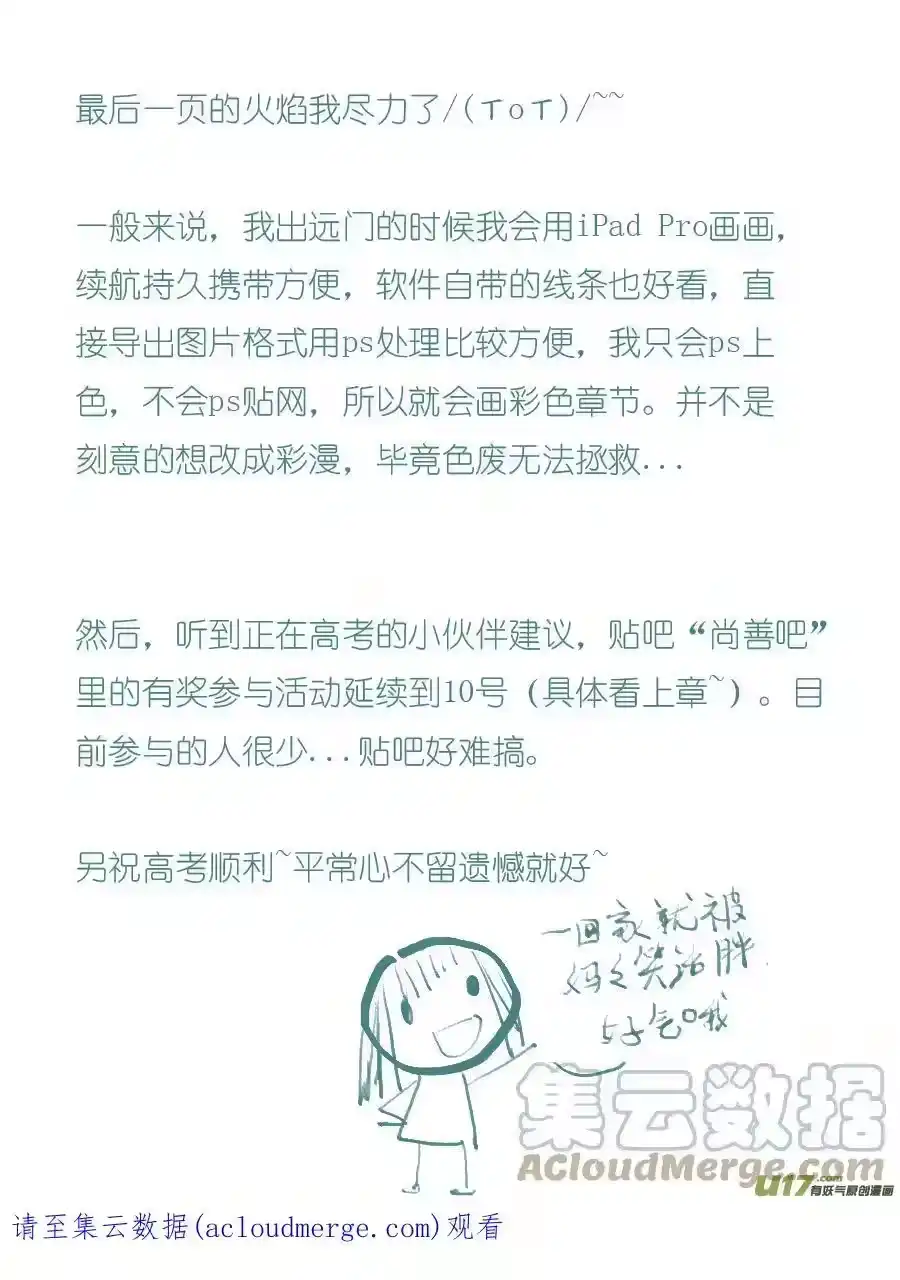 最后一页的火焰我尽力了/(ㄒoㄒ)/~~
一般来说，我出远门的时候我会用iPad Pro画画，
续航持久携带方便，软件自带的线条也好看，直
接导出图片格式用ps处理比较方便，我只会ps上
色，不会ps贴网，所以就会画彩色章节。并不是
刻意的想改成彩漫，毕竟色废无法拯救...
然后，听到正在高考的小伙伴建议，贴吧“尚善吧”
里的有奖参与活动延续到10号（具体看上章~）。目
前参与的人很少...贴吧好难搞。
另祝高考顺利~平常心不留遗憾就好~
一回家就被
妈々笑话胖
好气哦
集云数据
ACloudMerge.com
U17.com
有妖气原创漫画
请至集云数据(acloudmerge.com)观看